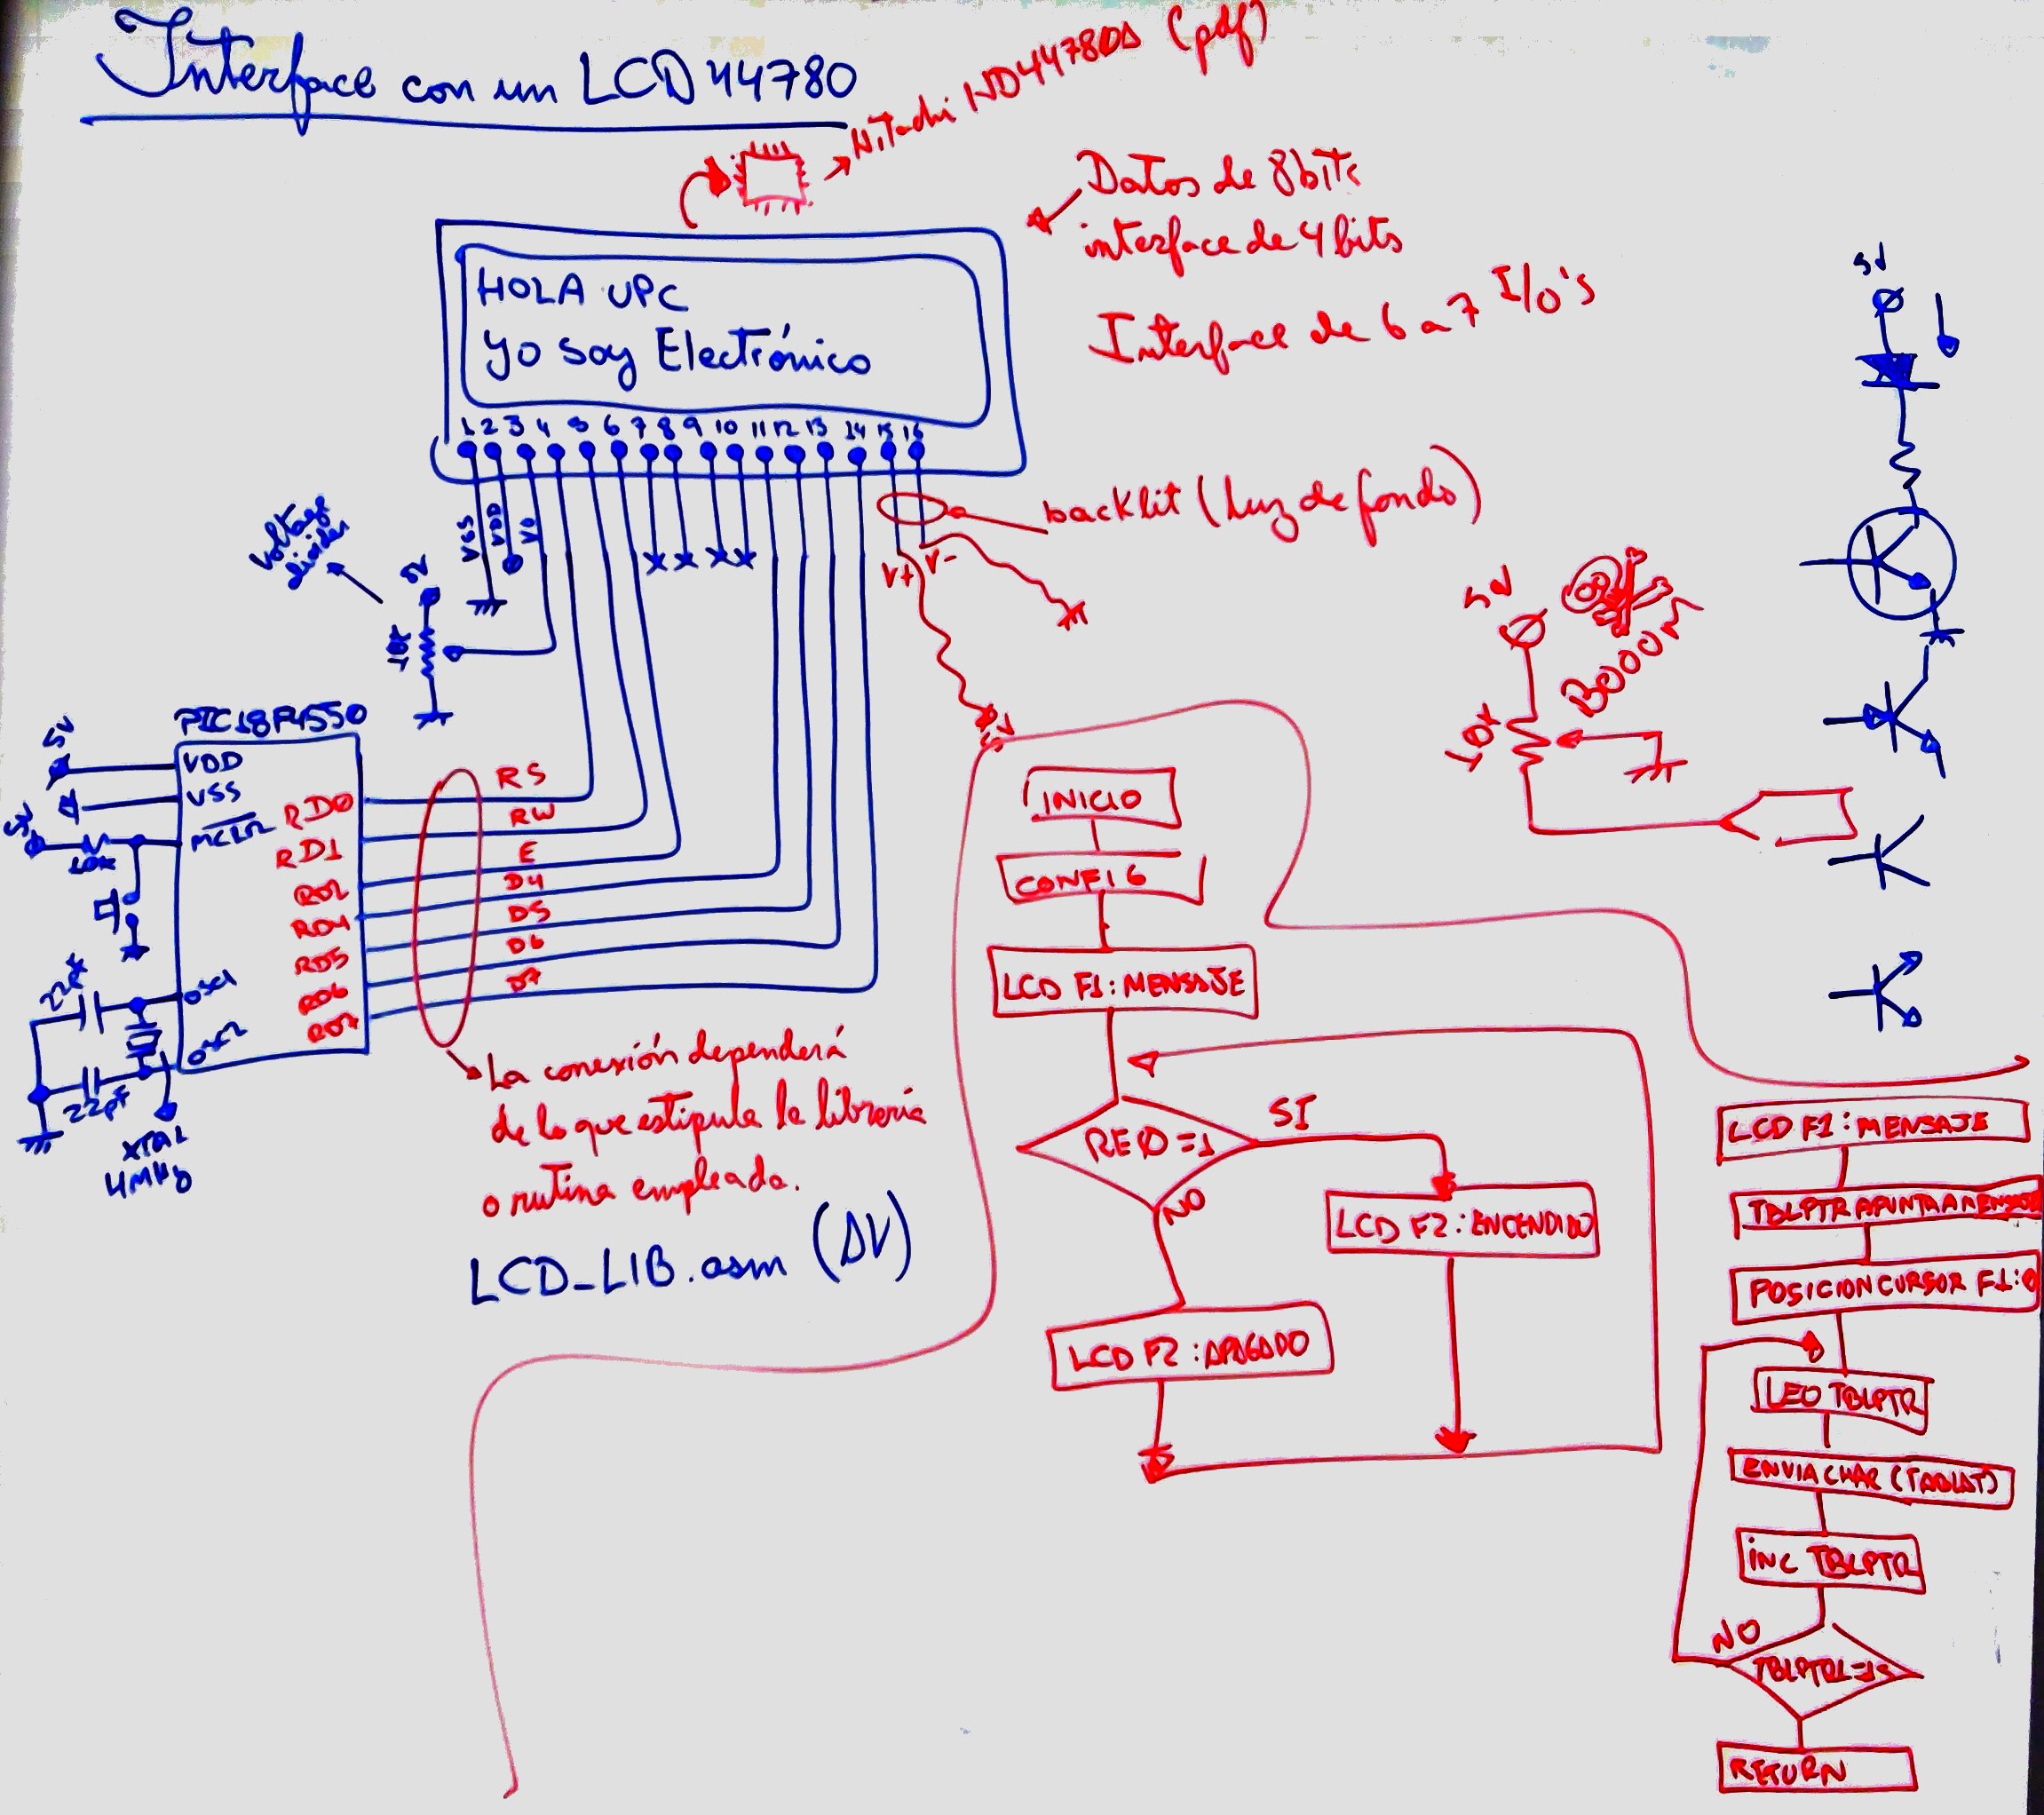 Interface con un LCD 44780
Hitachi HD44780Δ (pdf)
Datos de 8bits
interface de 4 bits
Interface de 6 a 7 I/O's
HOLA UPC
Yo soy Electrónico
1 2 3 4 5 6 7 8 9 10 11 12 13 14 15 16
VSS
VDD
V0
backlit (Luz de fondo)
V+ V-
5V
voltage
divider
5V
10K
PIC18F4550
5V
VDD
VSS
5V
MCLR
10K
OSC1
OSC2
22pF
22pF
XTAL
4MHz
RD0
RD1
RD2
RD4
RD5
RD6
RD7
RS
RW
E
D4
D5
D6
D7
La conexión dependerá
de lo que estipula la librería
o rutina empleada.
LCD_LIB.asm (AV)
INICIO
CONFIG
LCD F1: MENSAJE
RE0=1
SI
NO
LCD F2: ENCENDIDO
LCD F2: APAGADO
5V
5V
10K
BOOOM
LCD F1: MENSAJE
TBLPTR APUNTA A MENSAJE
POSICION CURSOR F1:0
LEO TBLPTR
ENVIA CHAR (TABLAT)
INC TBLPTR
NO
TBLPTRL=15
RETURN